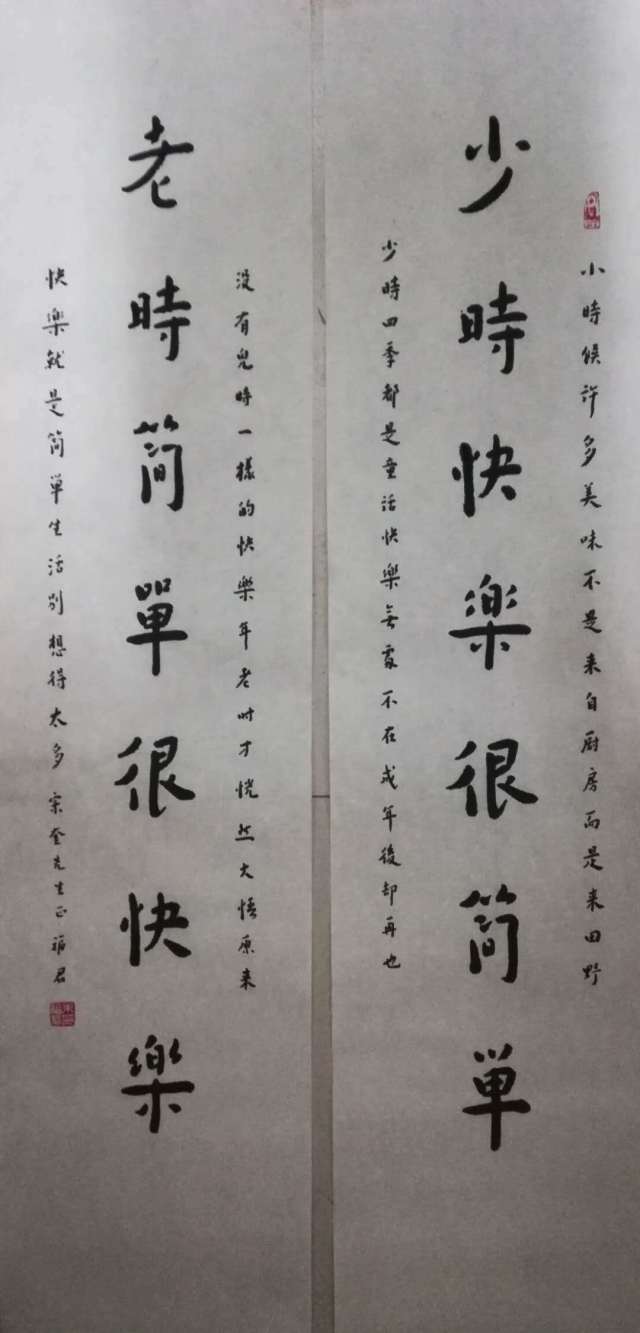 小時候許多美味不是来自厨房而是来田野
少時快楽很简単
少時四季都是童话快樂無處不在成年後却再也
没有兒時一樣的快樂年老时才恍然大悟原来
老時简單很快樂
快樂就是简單生活别想得太多 奎先生正 君